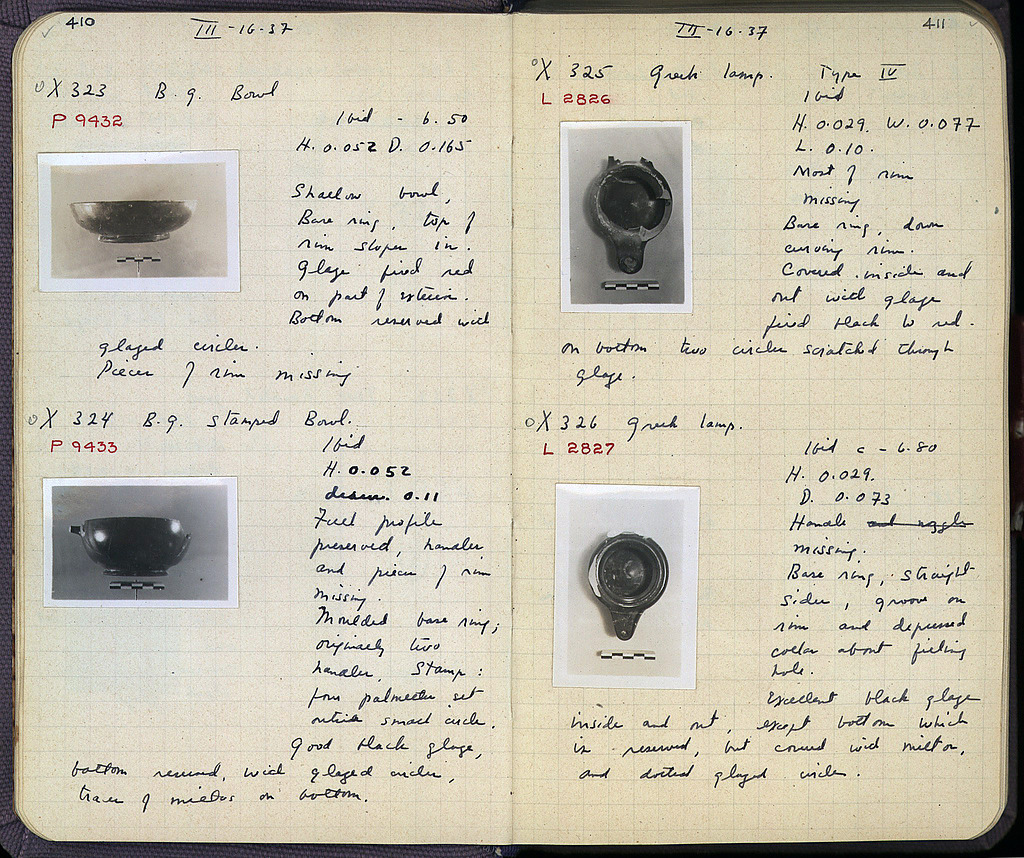 410
III - 16 - 37
X 323 B.g. Bowl
P 9432
Ibid - 6.50
H. 0.052 D. 0.165
Shallow bowl,
Base ring, top of
rim slopes in.
Glaze fired red
on part of exterior.
Bottom reserved with
glazed circles.
Pieces of rim missing
X 324 B.g. stamped Bowl.
P 9433
Ibid
H. 0.052
diam. 0.11
Full profile
preserved, handles
and pieces of rim
missing.
Moulded base ring;
originally two
handles, Stamp:
four palmettes set
outside small circle.
Good black glaze,
bottom reserved, with glazed circles,
traces of miltos on bottom.
411
III - 16 - 37
X 325 Greek lamp. Type IV
L 2826
Ibid
H. 0.029. W. 0.077
L. 0.10.
Most of rim
missing
Base ring, down
curving rim.
Covered inside and
out with glaze
fired black to red.
on bottom two circles scratched through
glaze.
X 326 Greek lamp.
L 2827
Ibid c - 6.80
H. 0.029.
D. 0.073
Handle and nozzle
missing.
Base ring, straight
sides, groove on
rim and depressed
collar about filling
hole.
Excellent black glaze
inside and out, except bottom which
is reserved, but covered with miltos,
and dotted glazed circles.